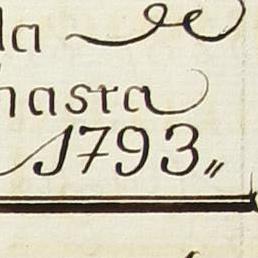 la de
hasta
1793,,